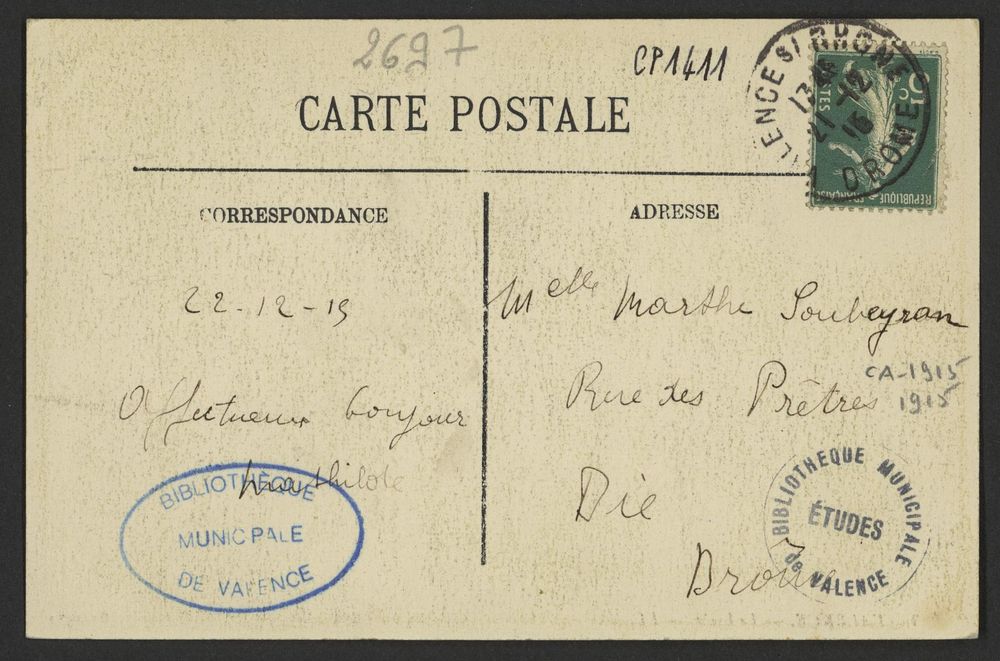 2697
CP1411
CARTE POSTALE
VALENCE S/ RHONE
13
21 -12
15
DROME
5c
POSTES
REPUBLIQUE FRANÇAISE
CORRESPONDANCE
ADRESSE
22-12-15
Affectueux bonjour
Mathilde
Melle Marthe Soubeyran
Rue des Prêtres
Die
Drôme
CA-1915
1915
BIBLIOTHÈQUE
MUNICIPALE
DE VALENCE
BIBLIOTHEQUE MUNICIPALE
ÉTUDES
de VALENCE